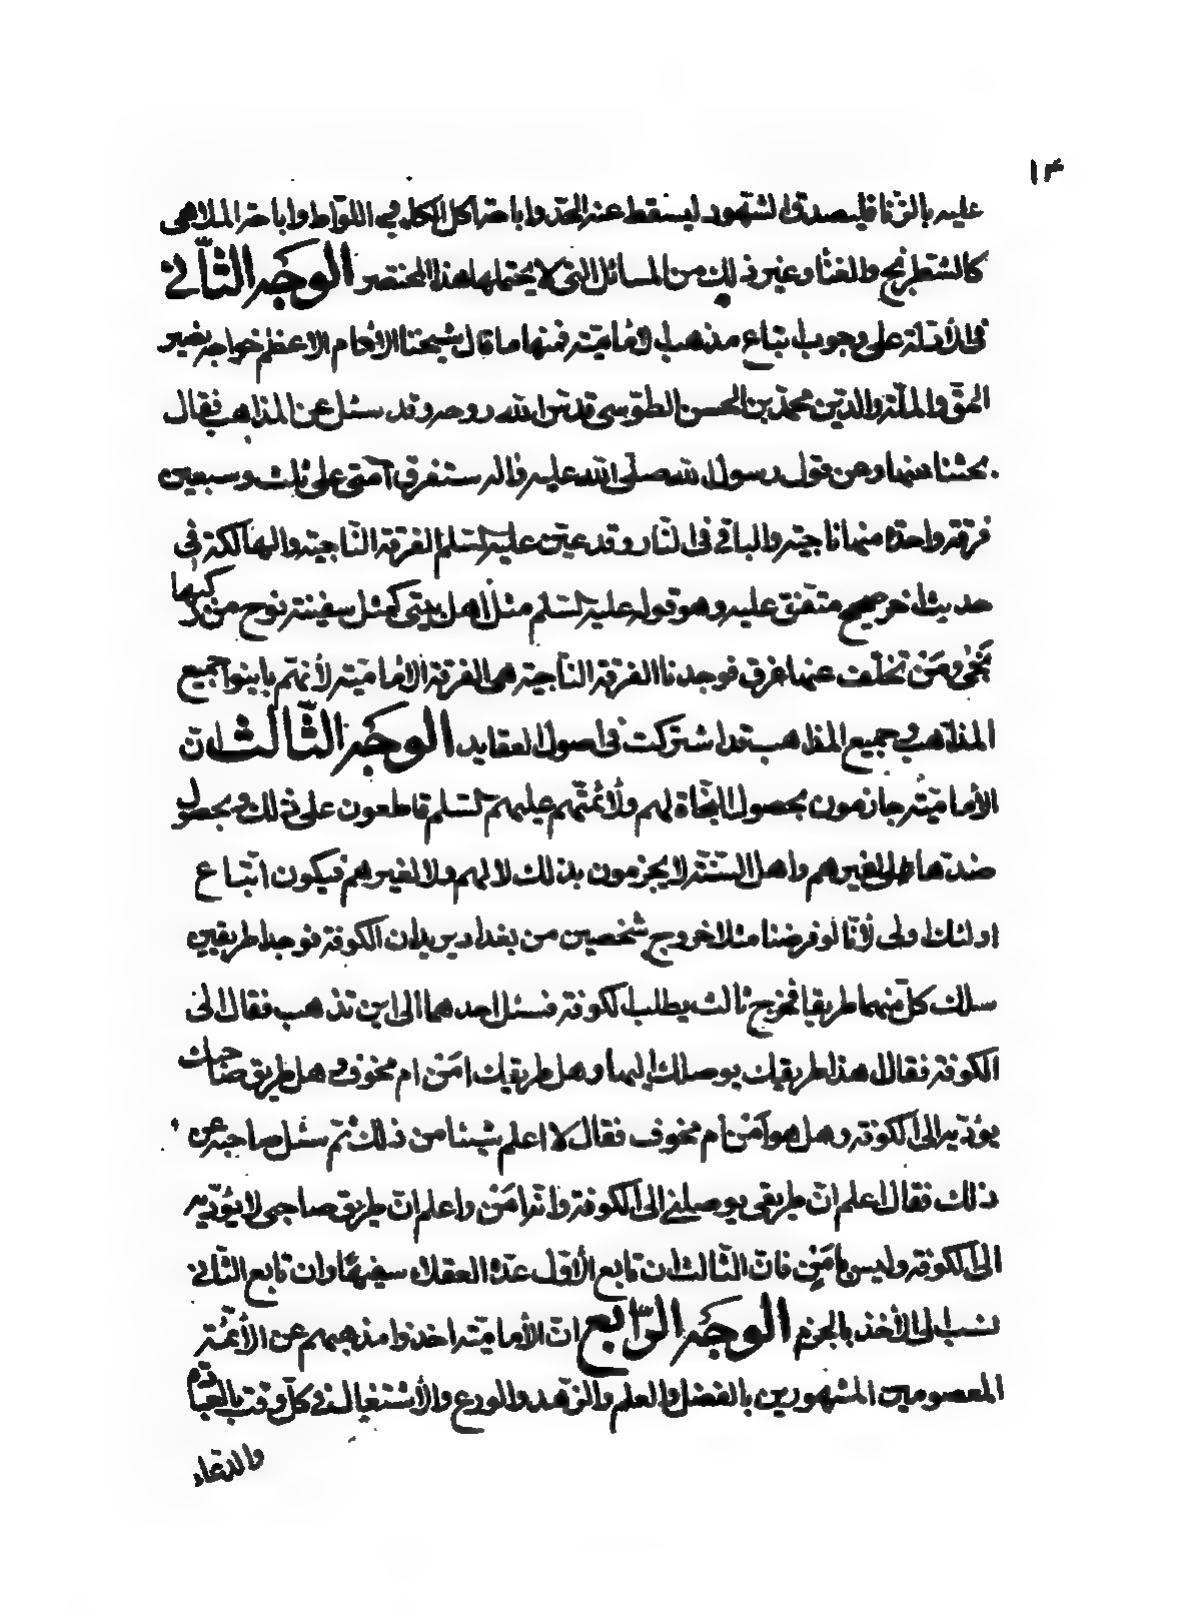 ١٤
عليه بالزنا فليصدق الشهود ليسقط عنه الحد واباحة اكل الكلب واللواط واباحة الملاهى
كالشطرنج والغنا وغير ذلك من المسائل التى لا يحتملها هذا المختصر الوجه الثانى
فى الادلة على وجوب اتباع مذهب الامامية فمنها ما قال شيخنا الامام الاعظم خواجه نصير
الحق والملة والدين محمد بن الحسن الطوسى قدس الله روحه وقد سئل عن المذاهب فقال
بحثنا عنها وعن قول رسول الله صلى الله عليه واله ستفرق امتى على ثلث وسبعين
فرقة واحدة منها ناجية والباقى فى النار وقد عين عليه السلم الفرقة الناجية والهالكة فى
حديث اخر صحيح متفق عليه وهو قوله عليه السلم مثل اهل بيتى كمثل سفينة نوح من ركبها
نجى ومن تخلف عنها غرق فوجدنا الفرقة الناجية هى الفرقة الامامية لانهم باينوا جميع
المذاهب وجميع المذاهب قد اشتركت فى اصول العقايد الوجه الثالث ان
الامامية جازمون بحصول النجاة لهم ولائمتهم عليهم السلم قاطعون على ذلك وبحصول
ضدها لغيرهم واهل السنة لا يجزمون بذلك لا لهم ولا لغيرهم فيكون اتباع
اولئك اولى لانا لو فرضنا مثلا خروج شخصين من بغداد يريدان الكوفة فوجدا طريقين
سلك كل منهما طريقا فخرج ثالث يطلب الكوفة فسئل احدهما الى اين تذهب فقال الى
الكوفة فقال هذا طريقك يوصلك اليها وهل طريقك امن ام مخوف وهل طريق صاحبك
يؤديه الى الكوفة وهل هو امن ام مخوف فقال لا اعلم شيئا من ذلك ثم سئل صاحبه عن
ذلك فقال اعلم ان طريقى يوصلنى الى الكوفة وانه امن واعلم ان طريق صاحبى لا يؤديه
الى الكوفة وليس بامن فان الثالث ان تابع الاول عده العقلاء سفيها وان تابع الثانى
نسب الى الاخذ بالحزم الوجه الرابع ان الامامية اخذوا مذهبهم عن الائمة
المعصومين المشهورين بالفضل والعلم والزهد والورع والاشتغال فى كل وقت بالعبادة
والدعاء